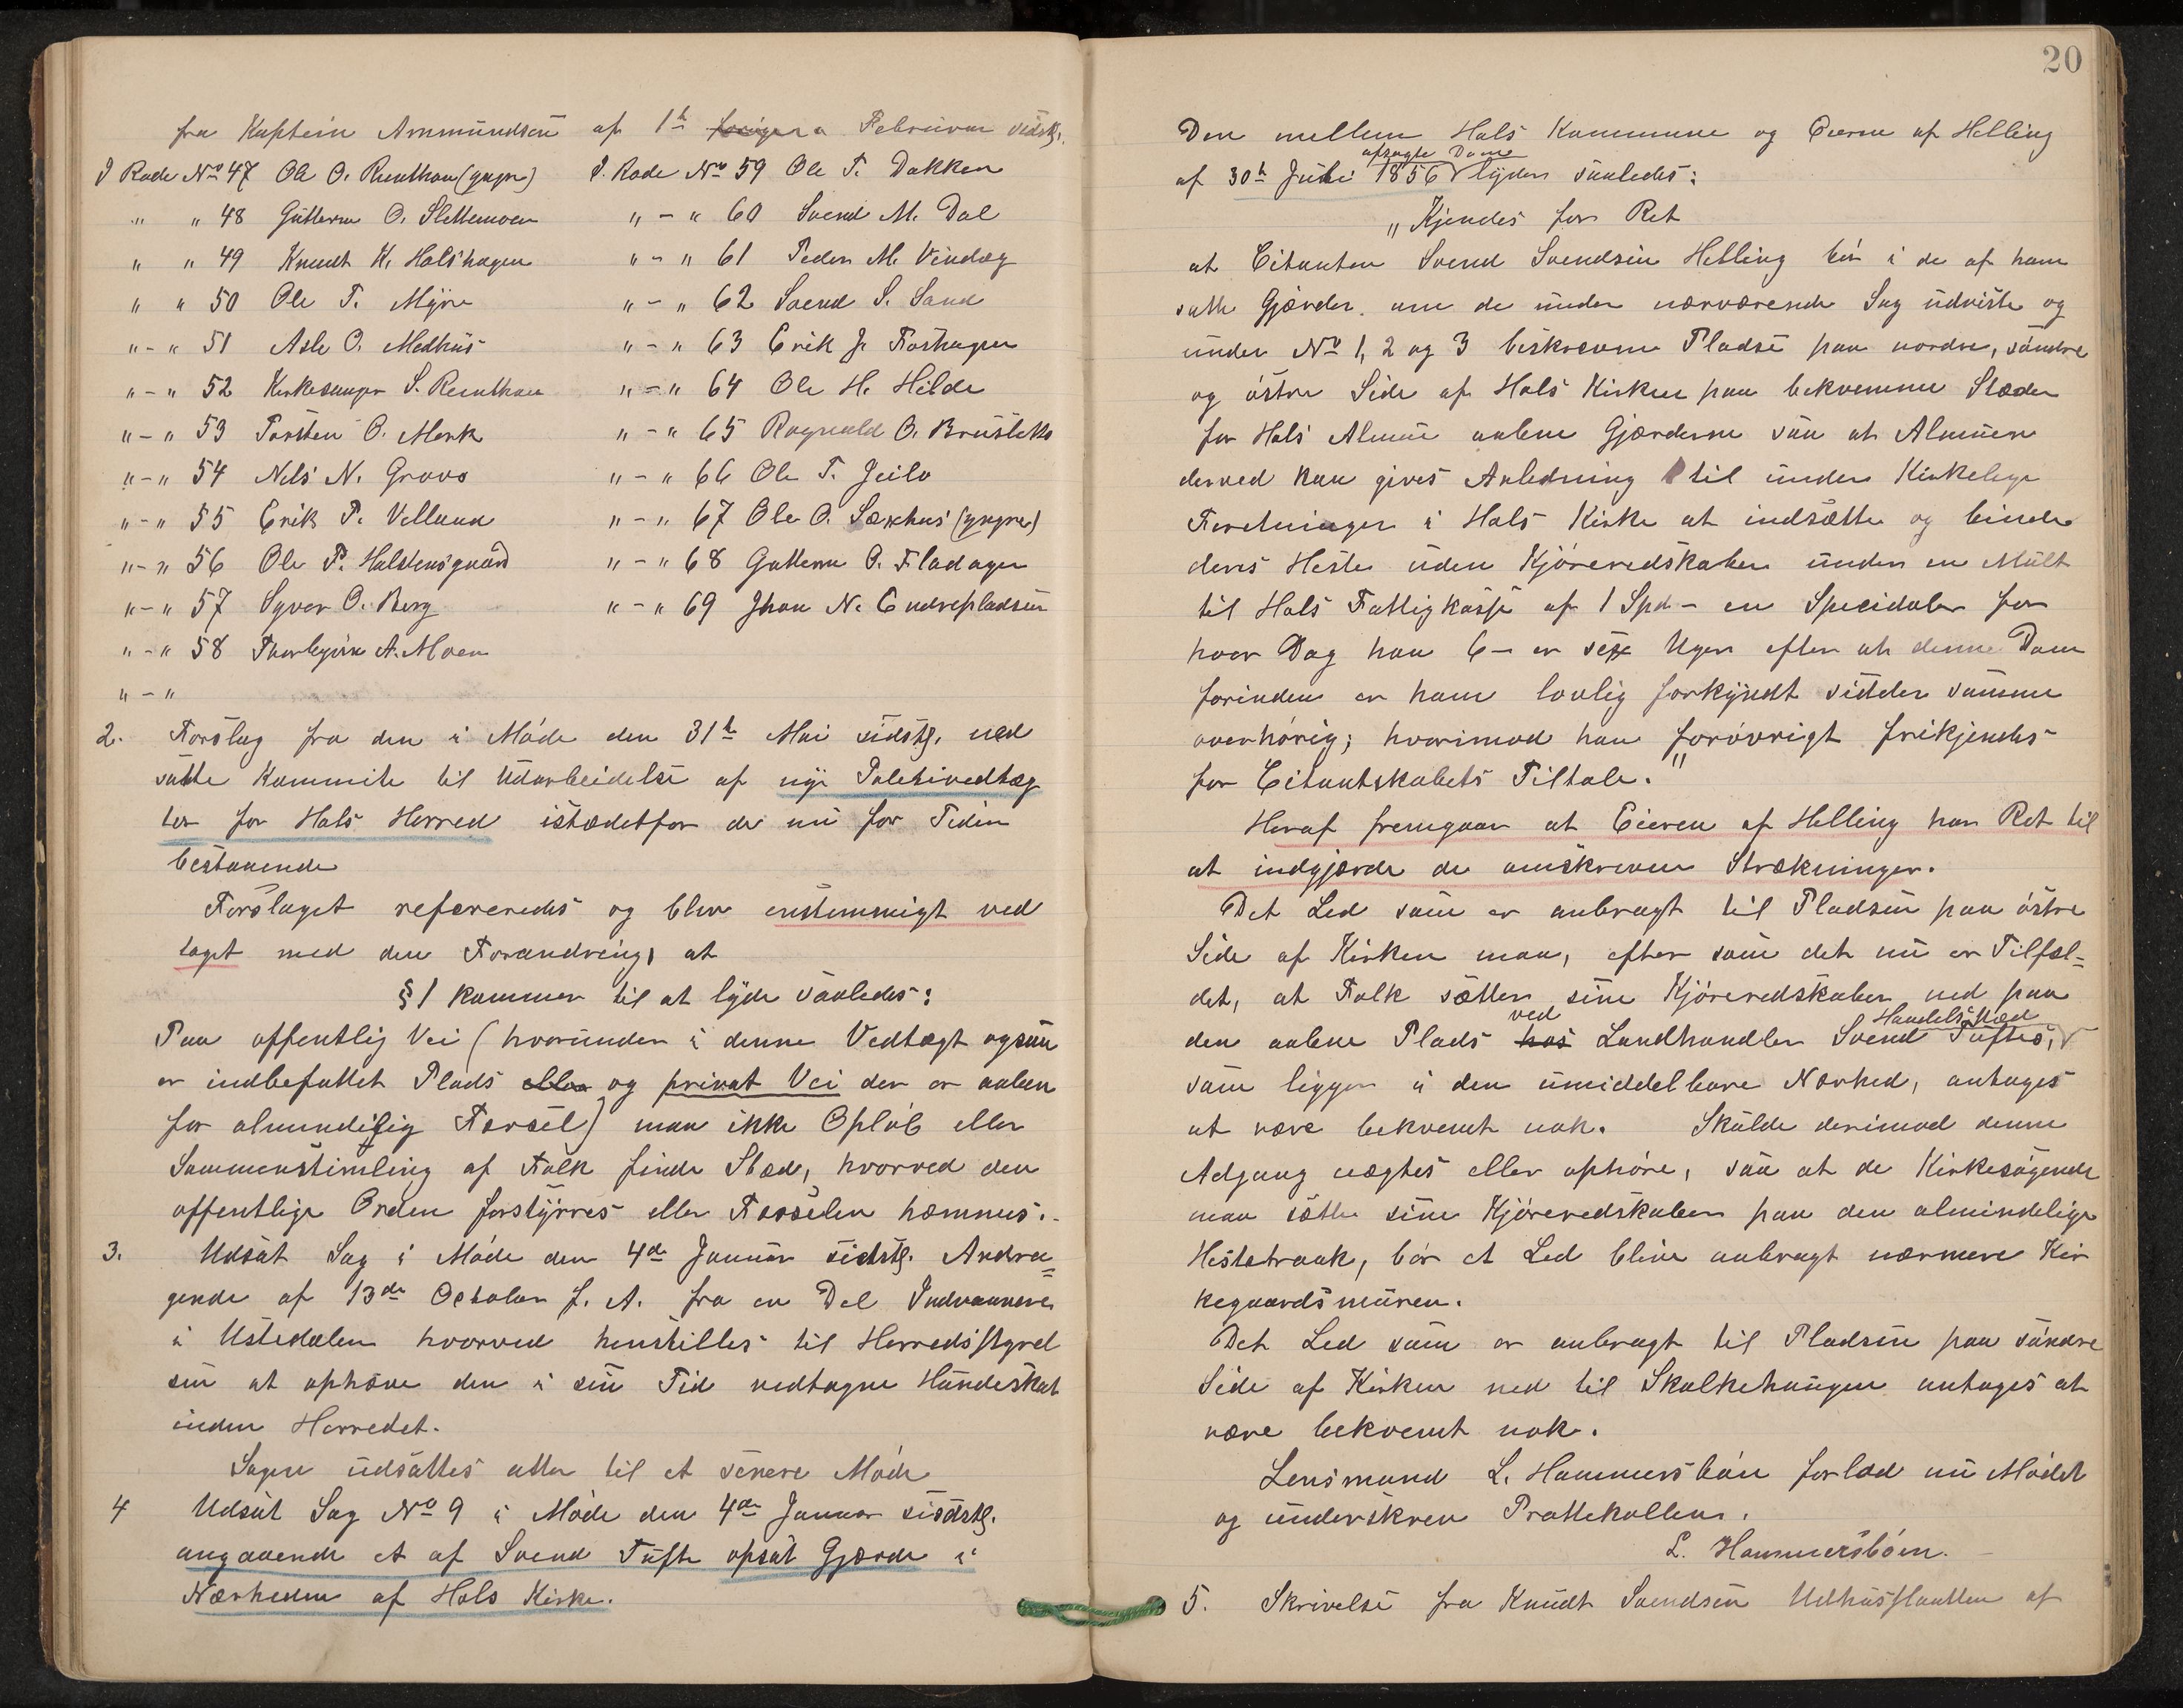 fra Kaptein Ammundsen af 1ste forigera Februar sidstl.
I Rode No 47 Ole O. Reinthon (yngre)
" " 48 Guttorm O. Slettemoen
" " 49 Knudt K. Halshagen
" " 50 Ole T. Myre
" - " 51 Asle O. Medhus
" - " 52 Kirkesanger S. Reinthon
" - " 53 Torsten O. Mork
" - " 54 Nils N. Grovo
" - " 55 Erik P. Villand
" - " 56 Ole P. Halstensgaard
" - " 57 Syver O. Berg
" - " 58 Thorbjørn A. Moen
" - "
I. Rode No 59 Ole T. Dokken
" - " 60 Svend M. Dal
" - " 61 Peder M. Vindeg
" - " 62 Svend S. Sand
" - " 63 Erik J. Foshagen
" - " 64 Ole H. Hilde
" - " 65 Ragnvald O. Brusletto
" - " 66 Ole T. Jeilo
" - " 67 Ole O. Sexhus (yngre)
" - " 68 Guttorm O. Fladager
" - " 69 Jhon N. Endrepladsen
2. Forslag fra den i Møde den 31te Mai sidstl. ned
satte Kommite til Udarbeidelse af nye Politivedtæg
ter for Hols Herred istædetfor de nu for Tiden
bestaaende
Forslaget refereredes og blev enstemmigt ved
taget med den Forandring, at
§ 1 kommer til at lyde saaledes:
Paa offentlig Vei (hvorunder i denne Vedtægt ogsaa
er indbefattet Plads eller og privat Vei der er aaben
for almindelig Færsel) maa ikke Opløb eller
Sammenstimling af Folk finde Sted, hvorved den
offentlige Orden forstyrres eller Færselen hemmes.
3. Udsat Sag i Møde den 4de Januar sidstl. Andra
gende af 13de October f. A. fra en Del Indvaanere
i Ustedalen hvorved henstilles til Herredsstyrel
sen at ophæve den i sin Tid vedtagne Hundeskat
inden Herredet.
Sagen udsattes atter til et senere Møde
4 Udsat Sag No 9 i Møde den 4de Januar sidstl.
angaaende et af Svend Tufte opsat Gjærde i
Nærheden af Hols Kirke.
20
Den mellem Hols Kommune og Eierne af Helling
afsagte Dom
af 30te Juli 1856 lyder saaledes:
"Kjendes for Ret
at Citanten Svend Svendsen Helling bør i de af ham
satte Gjærder om de under nærværende Sag udviste og
under No 1, 2 og 3 beskrevne Pladse paa nordre, søndre
og østre Side af Hols Kirken paa bekvemme Stæder
for Hols Almue aabne Gjærderne saa at Almuen
derved kan gives Anledning til under Kirkelige
Foretninger i Hols Kirke at indsætte og binde
deres Heste uden Kjøreredskaber under en Mult
til Hols Fattigkasse af 1 Spd - en Speciedaler for
hver Dag han 6 - er sex Uger efter at denne Dom
forinden er ham lovlig forkyndt sidder samme
overhørig; hvorimod han forøvrigt frikjendes
for Citantskabets Tiltale."
Heraf fremgaar at Eieren af Helling har Ret til
at indgjærde de omskrevne Strækninger.
Det Led som er anbragt til Pladsen paa østre
Side af Kirken maa, efter som det nu er Tilfæl-
det, at Folk sætter sine Kjøreredskaber ned paa
ved Handelssted
den aabne Plads hos Landhandler Svend Tuftes,
som ligger i den umiddelbare Nærhed, antages
at være bekvemt nok. Skulde derimod denne
Adgang nægtes eller ophøre, saa at de Kirkesøgende
maa sætte sine Kjøreredskaber paa den almindelige
Hestetraak, bør et Led blive anbragt nærmere Kir
kegaardsmuren.
Det Led som er anbragt til Pladsen paa søndre
Side af Kirken ned til Skulkehaugen antages at
være bekvemt nok.
Lensmand L. Hammersbøen forlod nu Mødet
og underskrev Prottekollen.
L. Hammersbøen.
5. Skrivelse fra Knudt Svendsen Udhusslaatten af